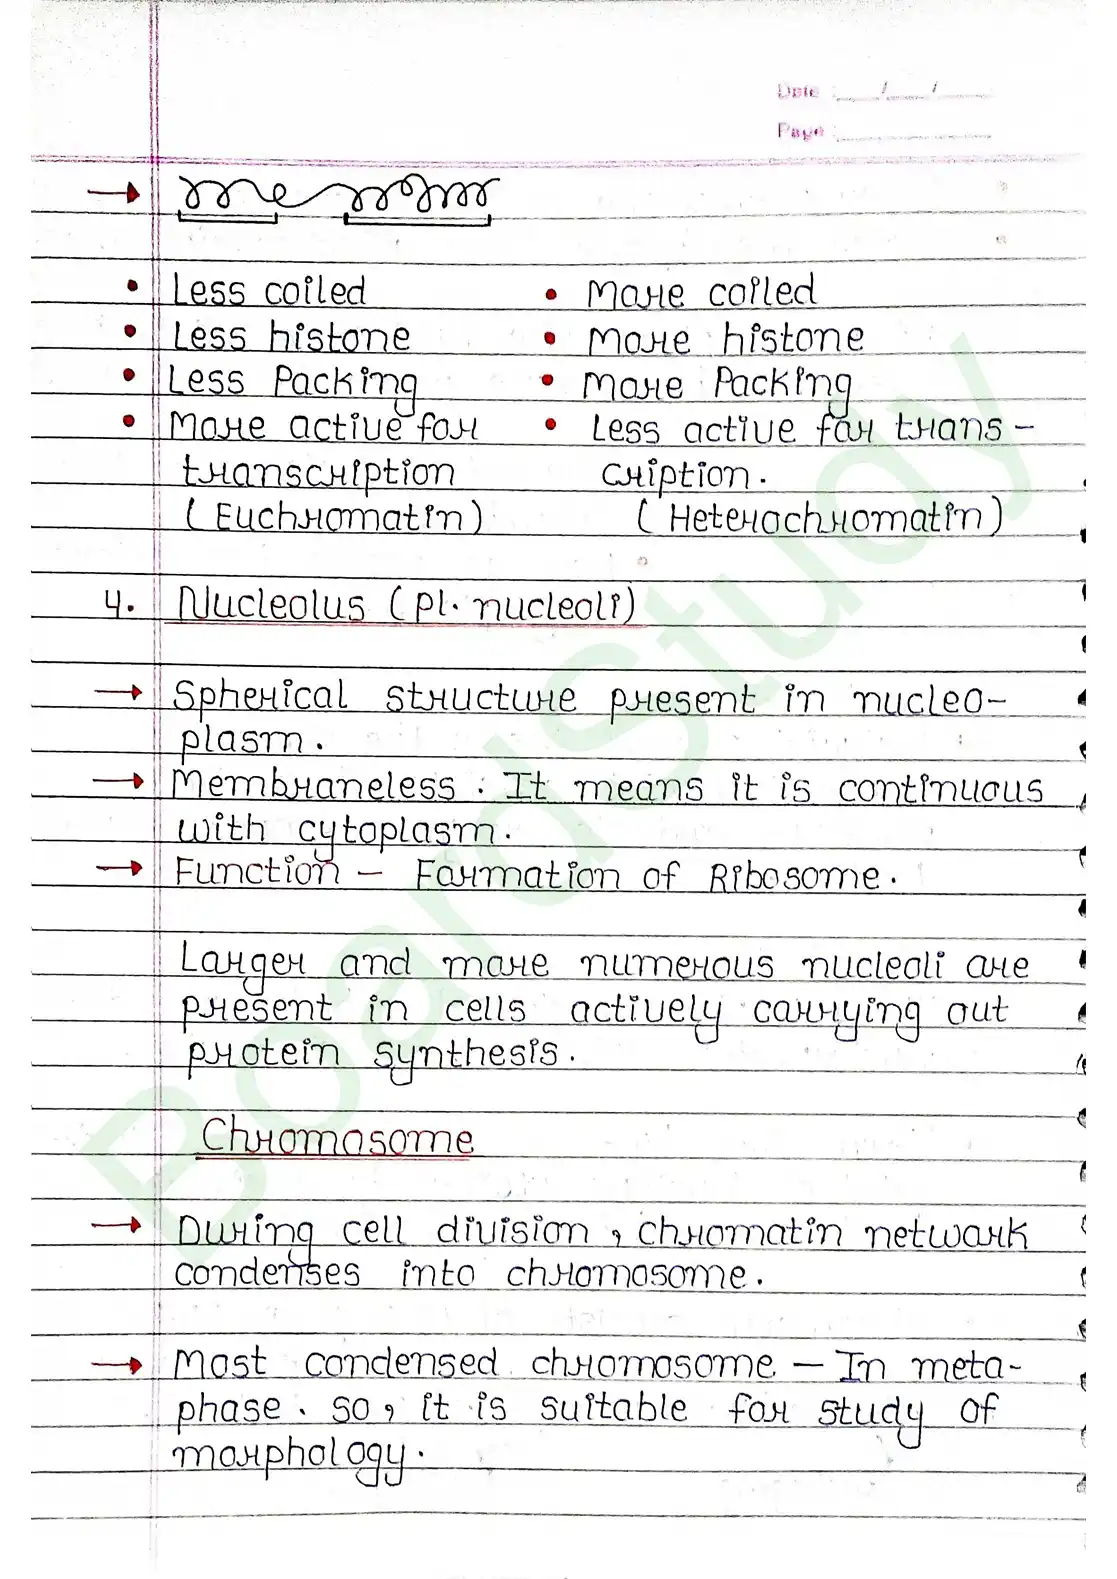 Date : __/__/__
Page : ______
→
• Less coiled • More coiled
• Less histone • More histone
• Less Packing • More Packing
• More active for • Less active for trans-
transcription cription.
(Euchromatin) (Heterochromatin)
4. Nucleolus (Pl. nucleoli)
→ Spherical structure present in nucleo-
plasm.
→ Membraneless : It means it is continuous
with cytoplasm.
→ Function - Formation of Ribosome.
Larger and more numerous nucleoli are
present in cells actively carrying out
protein synthesis.
Chromosome
→ During cell division, chromatin network
condenses into chromosome.
→ Most condensed chromosome - In meta-
phase. so, it is suitable for study of
morphology.
BoardStudy